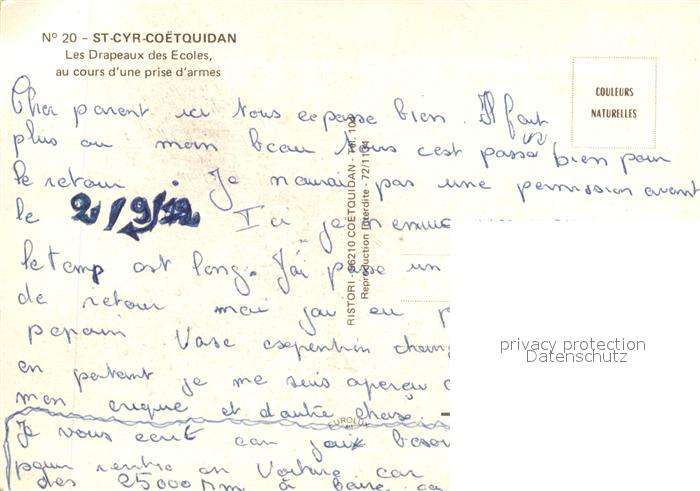 N° 20 – ST-CYR-COËTQUIDAN
Les Drapeaux des Ecoles,
au cours d'une prise d'armes
COULEURS
NATURELLES
Cher parent ici tous ce passe bien. Il fait
plus ou moin beau tous c'est passé bien pour
le retour. Je n'aurai pas une permission avant
le 2/9/72 Ici je m'ennuie
le temp est long. J'ai passe un
de retour mai jai eu
pepain Vase
en partant je me suis aperçu
mon et d'autre chose.
Je vous ecrit car besoin
pour rentre en Voiture car
des 25000 à car
RISTORI - 56210 COËTQUIDAN - Tél. 100
Reproduction Interdite - 72/1194
EUROLUX
privacy protection
Datenschutz